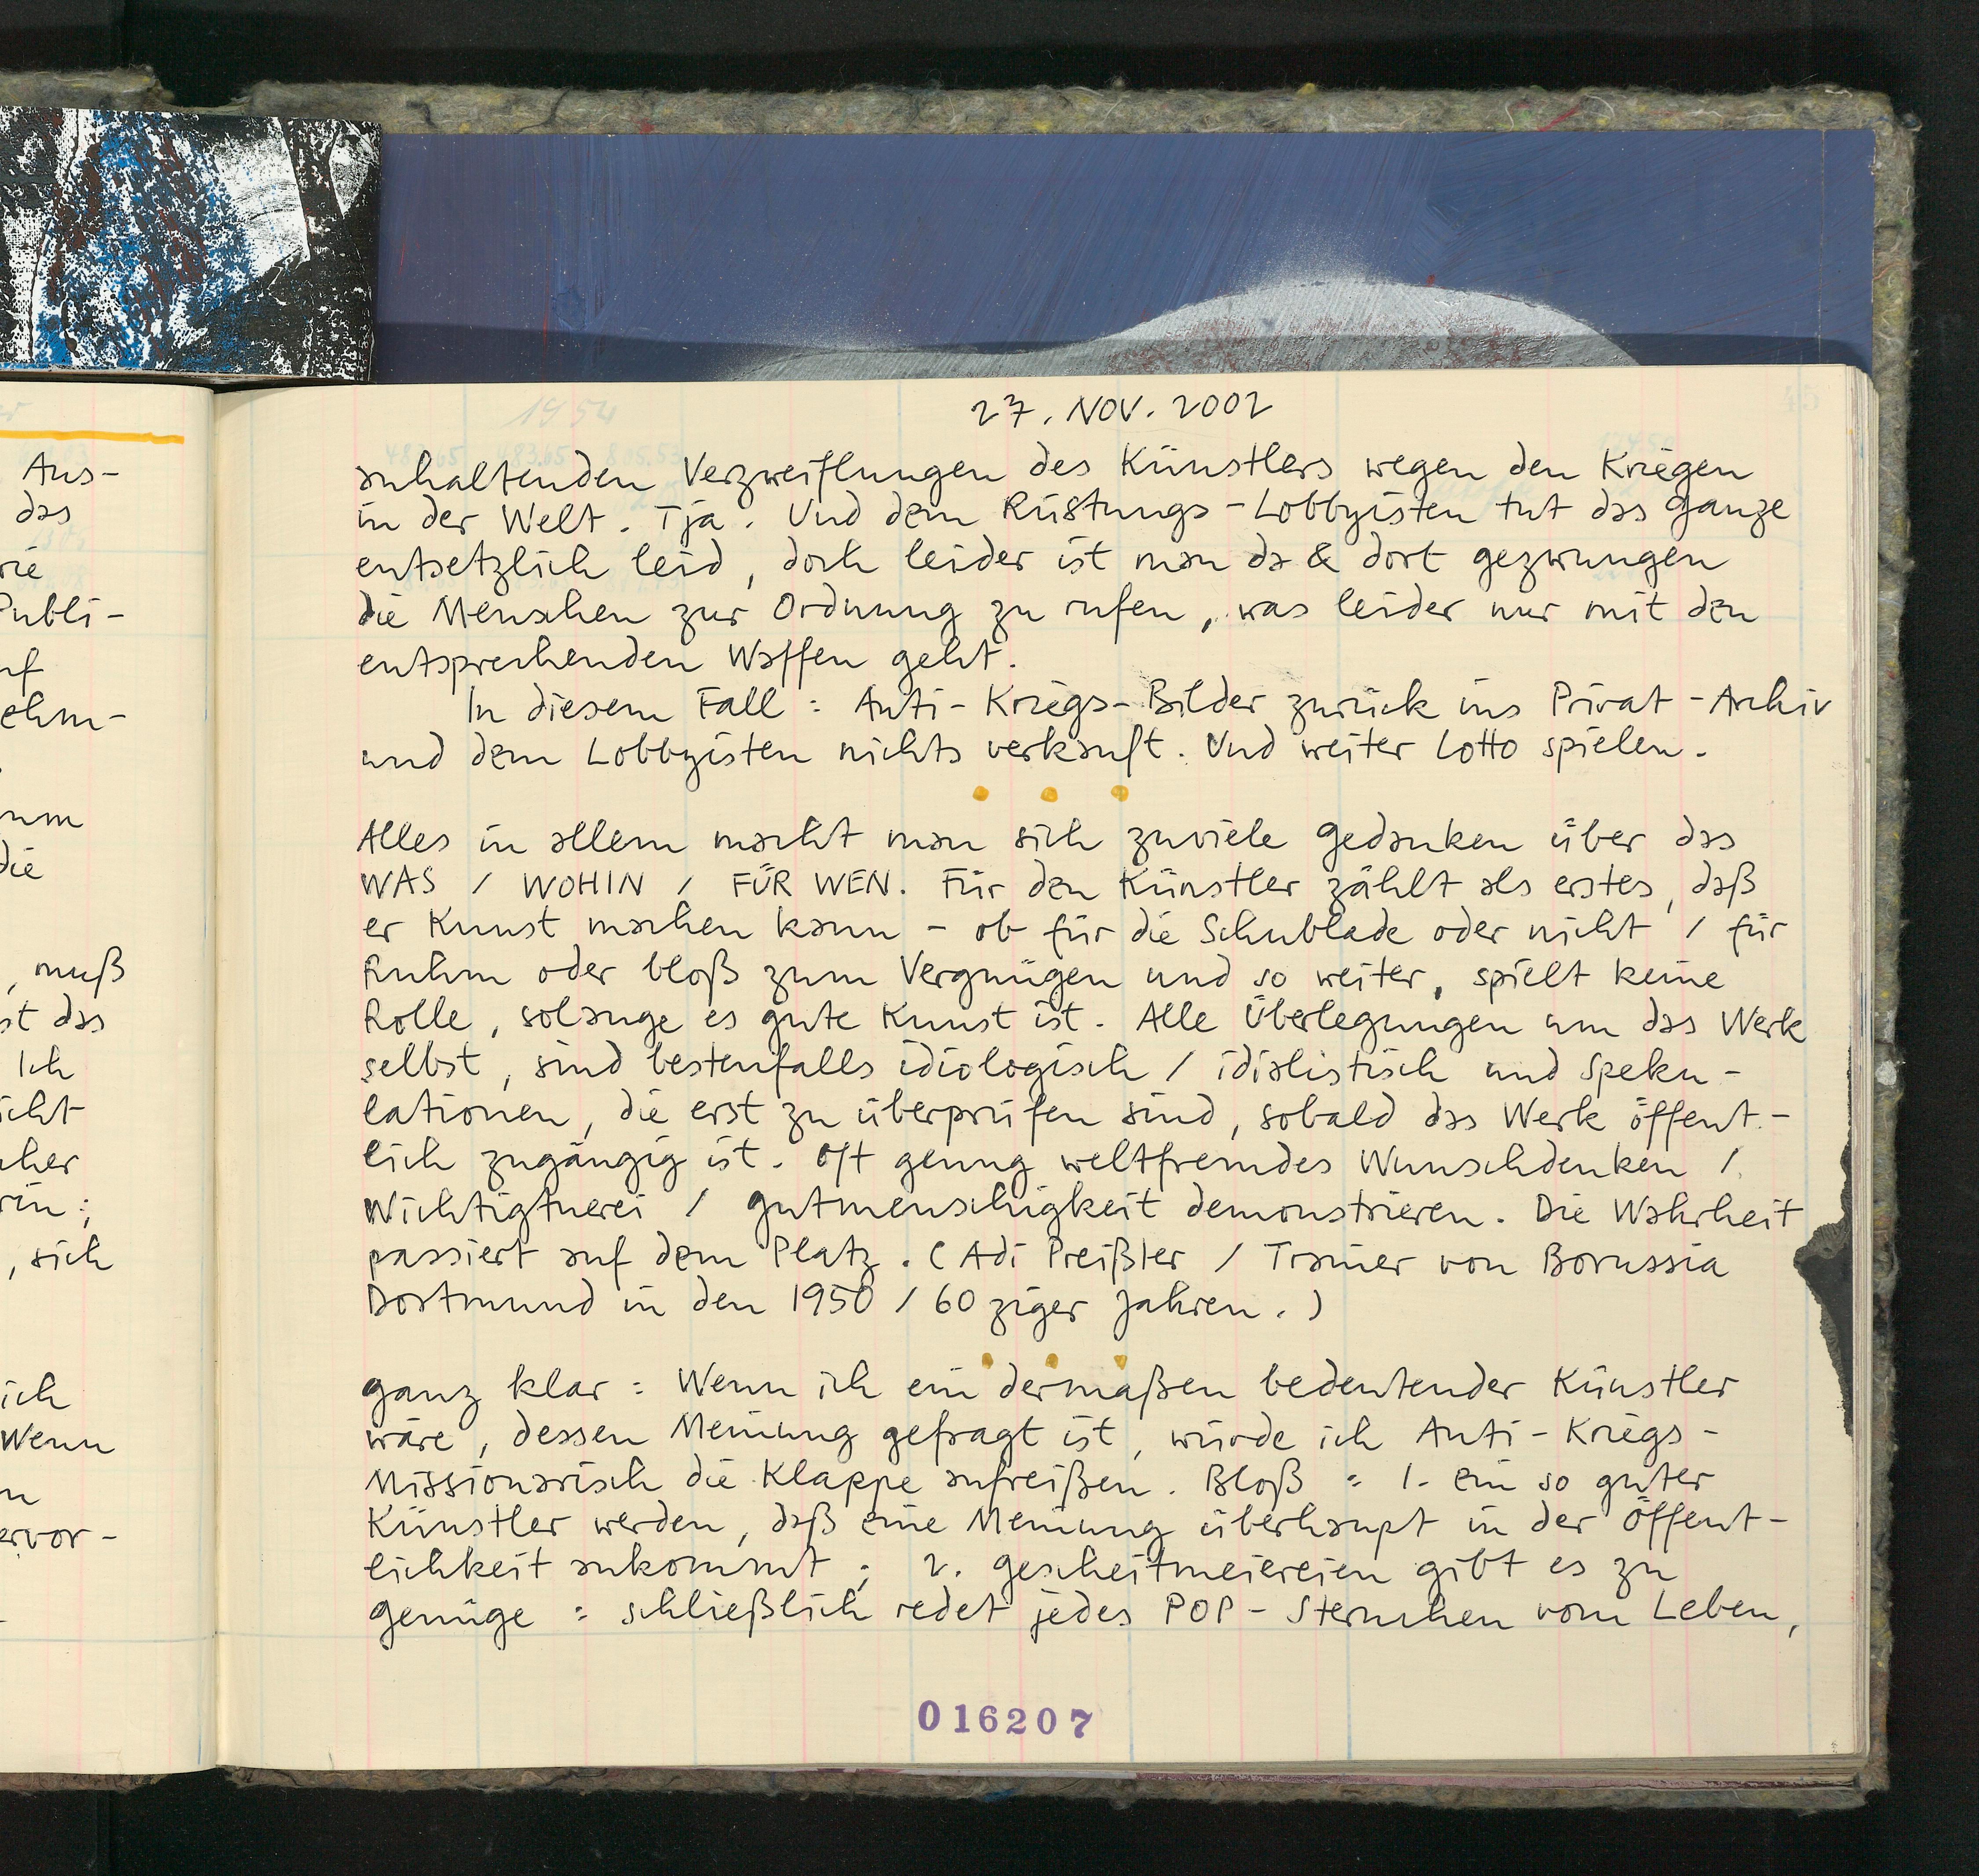 Aus-
das
rie
Publi-
uf
ehm-
um
die
, muß
st das
Ich
icht
cher
rin;
, sich
ich
Wenn
n
ervor-
1954
27. NOV. 2002
anhaltenden Verzweiflungen des Künstlers wegen den Kriegen
in der Welt. Tja. Und dem Rüstungs-Lobbyisten tut das Ganze
entsetzlich leid, doch leider ist man da & dort gezwungen
die Menschen zur Ordnung zu rufen, was leider nur mit den
entsprechenden Waffen geht.
In diesem Fall: Anti-Kriegs-Bilder zurück ins Privat-Archiv
und dem Lobbyisten nichts verkauft. Und weiter Lotto spielen.
Alles in allem macht man sich zuviele Gedanken über das
WAS / WOHIN / FÜR WEN. Für den Künstler zählt als erstes, daß
er Kunst machen kann – ob für die Schublade oder nicht / für
Ruhm oder bloß zum Vergnügen und so weiter, spielt keine
Rolle, solange es gute Kunst ist. Alle Überlegungen um das Werk
selbst, sind bestenfalls idiologisch / idialistisch und Speku-
lationen, die erst zu überprüfen sind, sobald das Werk öffent-
lich zugängig ist. Oft genug weltfremdes Wunschdenken /
Wichtigtuerei / Gutmenschigkeit demonstrieren. Die Wahrheit
passiert auf dem Platz. (Adi Preißler / Trainer von Borussia
Dortmund in den 1950 / 60ziger Jahren.)
Ganz klar: Wenn ich ein dermaßen bedeutender Künstler
wäre, dessen Meinung gefragt ist, würde ich Anti-Kriegs-
Missionarisch die Klappe aufreißen. Bloß: 1. ein so guter
Künstler werden, daß eine Meinung überhaupt in der Öffent-
lichkeit ankommt; 2. Gescheitmeiereien gibt es zu
Genüge: schließlich redet jedes POP-Sternchen vom Leben,
016207